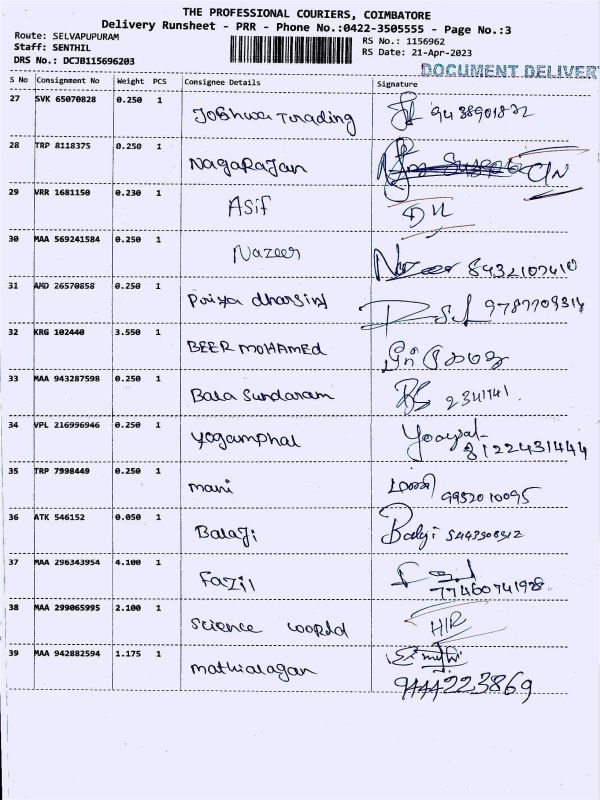 THE PROFESSIONAL COURIERS, COIMBATORE
Delivery Runsheet - PRR - Phone No.:0422-3505555 - Page No.:3
Route: SELVAPUPURAM
Staff: SENTHIL
DRS No.: DCJB115696203
RS No.: 1156962
RS Date: 21-Apr-2023
DOCUMENT DELIVER
S No Consignment No Weight PCS Consignee Details Signature
27 SVK 65070828 0.250 1 Joshwa Turading
28 TRP 8118375 0.250 1 Nagarajan
29 VRR 1681150 0.230 1 Asif
30 MAA 569241584 0.250 1 Nazeer 8432107410
31 AMD 26570858 0.250 1 9787709314
32 KRG 102440 3.550 1 BEER MOHAMED
33 MAA 943287598 0.250 1 Bala Sundaram 2341141
34 VPL 216996946 0.250 1 Yogamphal 8122431444
35 TRP 7998449 0.250 1 mani மணி 9952010095
36 ATK 546152 0.050 1 Balaji Balaji
37 MAA 296343954 4.100 1 Fazil 77460741928
38 MAA 299065995 2.100 1 science world H/R
39 MAA 942882594 1.175 1 mathialagan 9444223869